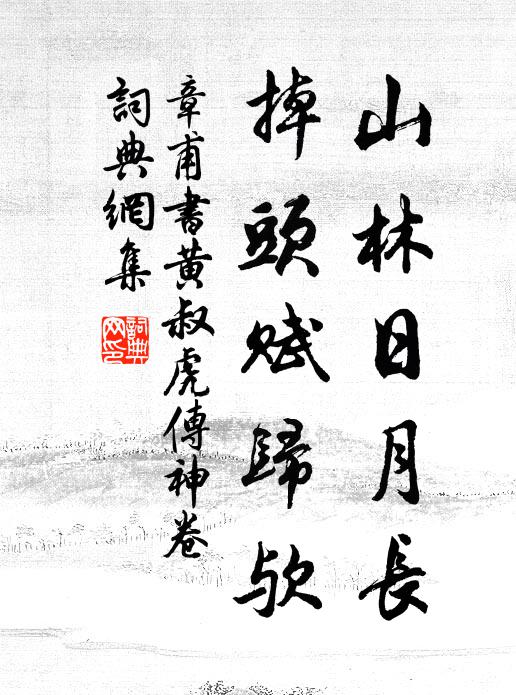 山林日月長
掉頭賦歸歟
章甫書黄叔虎傳神卷
詞典網集
詞典網印